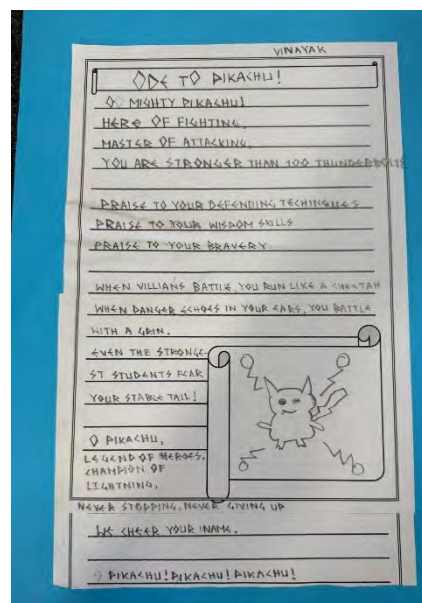 VINAYAK
ODE TO PIKACHU!
O MIGHTY PIKACHU!
HERO OF FIGHTING,
MASTER OF ATTACKING,
YOU ARE STRONGER THAN 100 THUNDERBOLTS
PRAISE TO YOUR DEFENDING TECHINQUES
PRAISE TO YOUR WISDOM SKILLS
PRAISE TO YOUR BRAVERY
WHEN VILLIANS BATTLE, YOU RUN LIKE A CHEETAH
WHEN DANGER ECHOES IN YOUR EARS, YOU BATTLE
WITH A GRIN.
EVEN THE STRONGE-
ST STUDENTS FEAR
YOUR STABLE TAIL!
O PIKACHU,
LEGEND OF HEROES.
CHAMPION OF
LIGHTNING,
NEVER STOPPING, NEVER GIVING UP
WE CHEER YOUR NAME.
O PIKACHU! PIKACHU! PIKACHU!